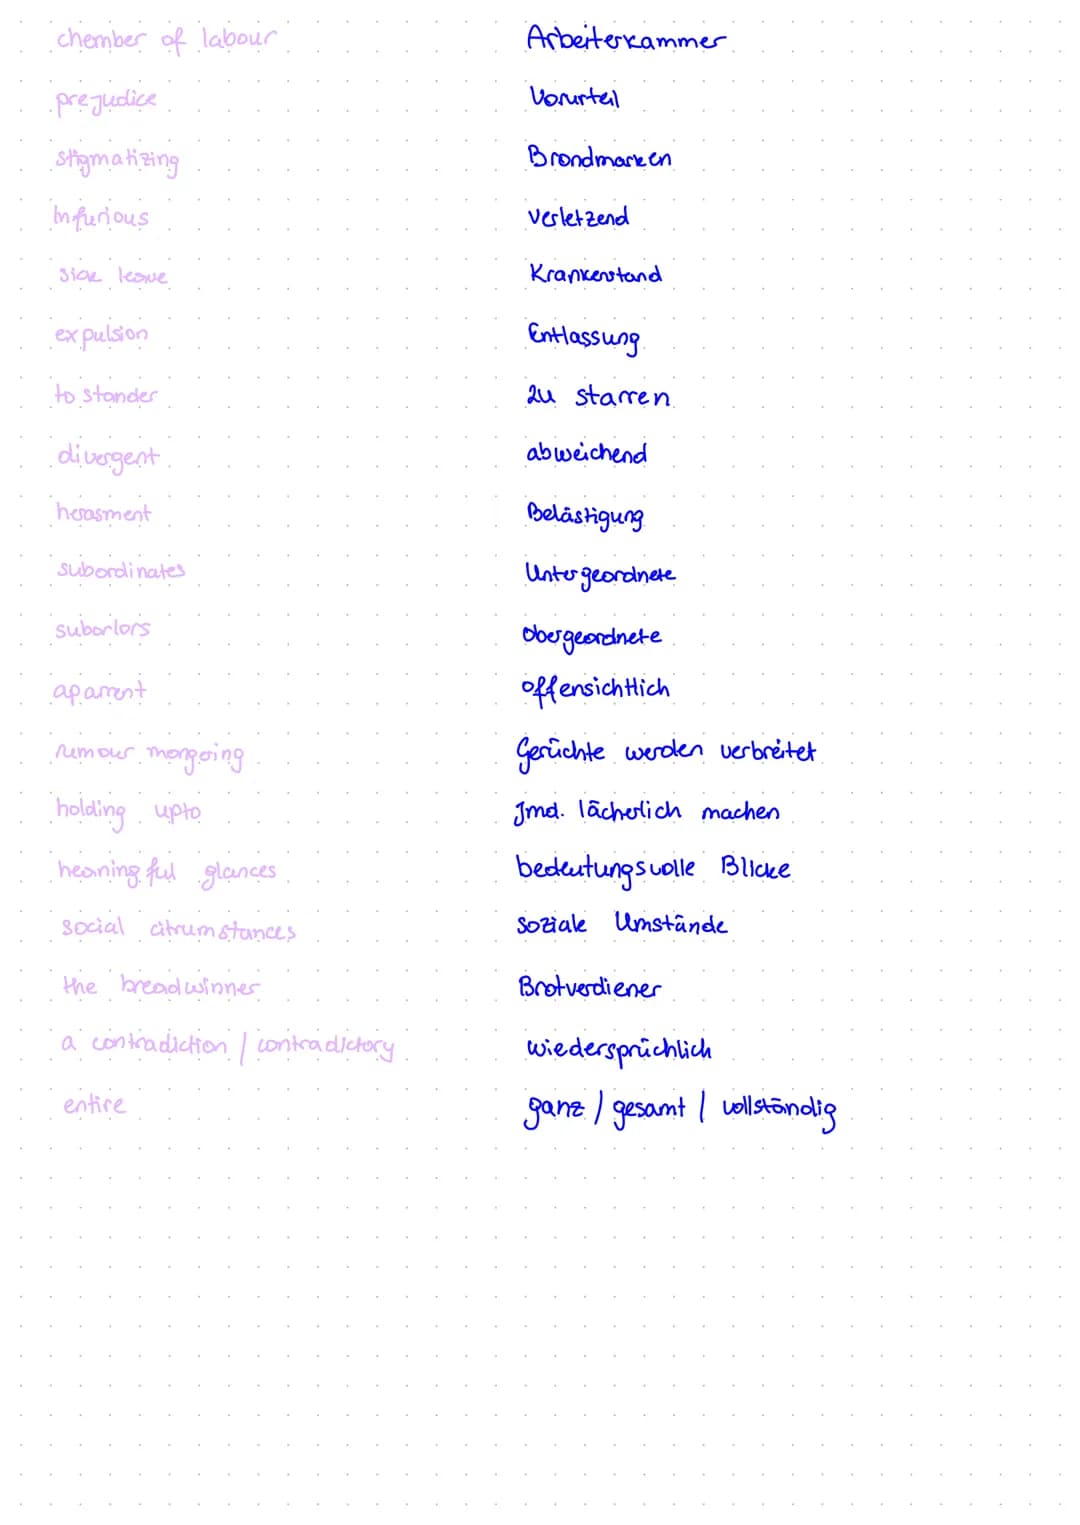 chember of labour Arbeiterkammer
prejudice Vorurteil
stigmatizing Brandmarken
Infurious verletzend
sick leave Krankenstand
expulsion Entlassung
to stander zu starren
divergent abweichend
herasment Belästigung
subordinates Untergeordnete
suborlors Obergeordnete
aparrent offensichtlich
rumour mongering Gerüchte werden verbreitet
holding upto Jmd. lächerlich machen
heaningful glances bedeutungsvolle Blicke
social citrumstances soziale Umstände
the breadwinner Brotverdiener
a contradiction / contradictory wiedersprüchlich
entire ganz / gesamt / vollständig